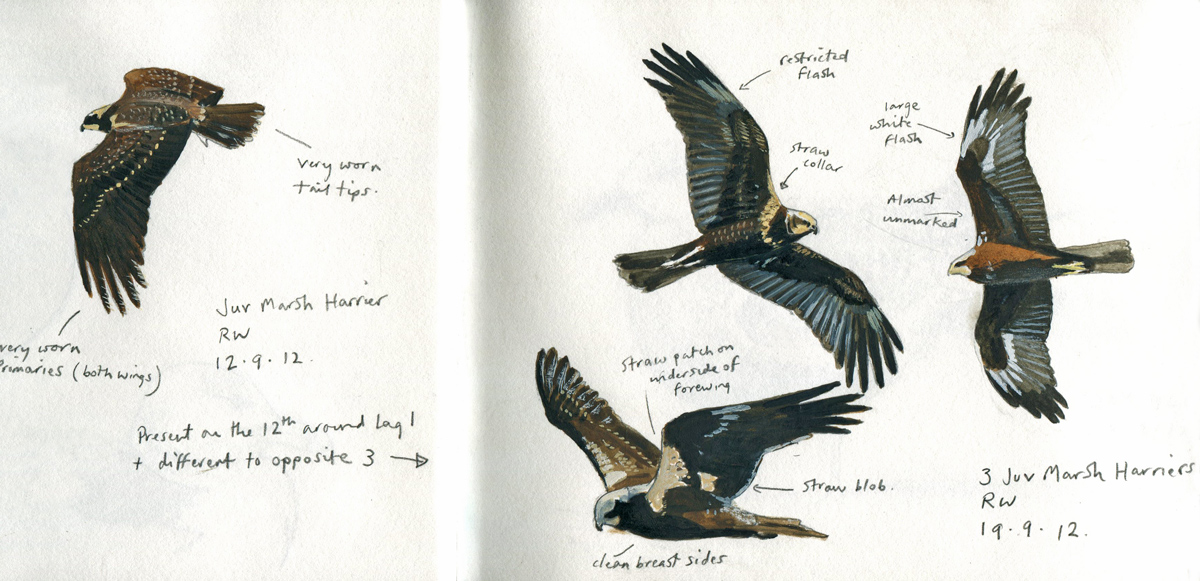 very worn
tail tips.
Juv Marsh Harrier
RW
12.9.12.
very worn
Primaries (both wings)
Present on the 12th around Lag 1
+ different to opposite 3 →
restricted
flash
straw
collar
large
white
flash
Almost
unmarked
straw patch on
underside of
forewing
straw blob.
clean breast sides
3 Juv Marsh Harriers
RW
19.9.12.